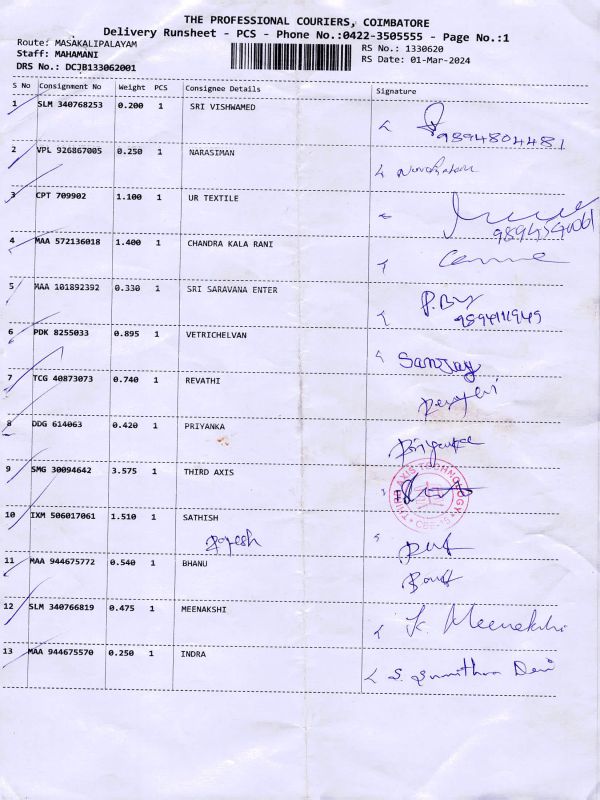 THE PROFESSIONAL COURIERS, COIMBATORE
Delivery Runsheet - PCS - Phone No.:0422-3505555 - Page No.:1
Route: MASAKALIPALAYAM
Staff: MAHAMANI
DRS No.: DCJB133062001
RS No.: 1330620
RS Date: 01-Mar-2024
S No Consignment No Weight PCS Consignee Details Signature
1 SLM 340768253 0.200 1 SRI VISHWAMED
9894804481
2 VPL 926867005 0.250 1 NARASIMAN
3 CPT 709902 1.100 1 UR TEXTILE
4 MAA 572136018 1.400 1 CHANDRA KALA RANI
5 MAA 101892392 0.330 1 SRI SARAVANA ENTER
6 PDK 8255033 0.895 1 VETRICHELVAN
Sanjay
7 TCG 40873073 0.740 1 REVATHI
Revathi
8 DDG 614063 0.420 1 PRIYANKA
Priyanka
9 SMG 30094642 3.575 1 THIRD AXIS
THIRD AXIS TECHNOLOGY
CBE-15
10 IXM 506017061 1.510 1 SATHISH
Rajesh
11 MAA 944675772 0.540 1 BHANU
12 SLM 340766819 0.475 1 MEENAKSHI
K. Meenakshi
13 MAA 944675570 0.250 1 INDRA
S. Sumithra Devi